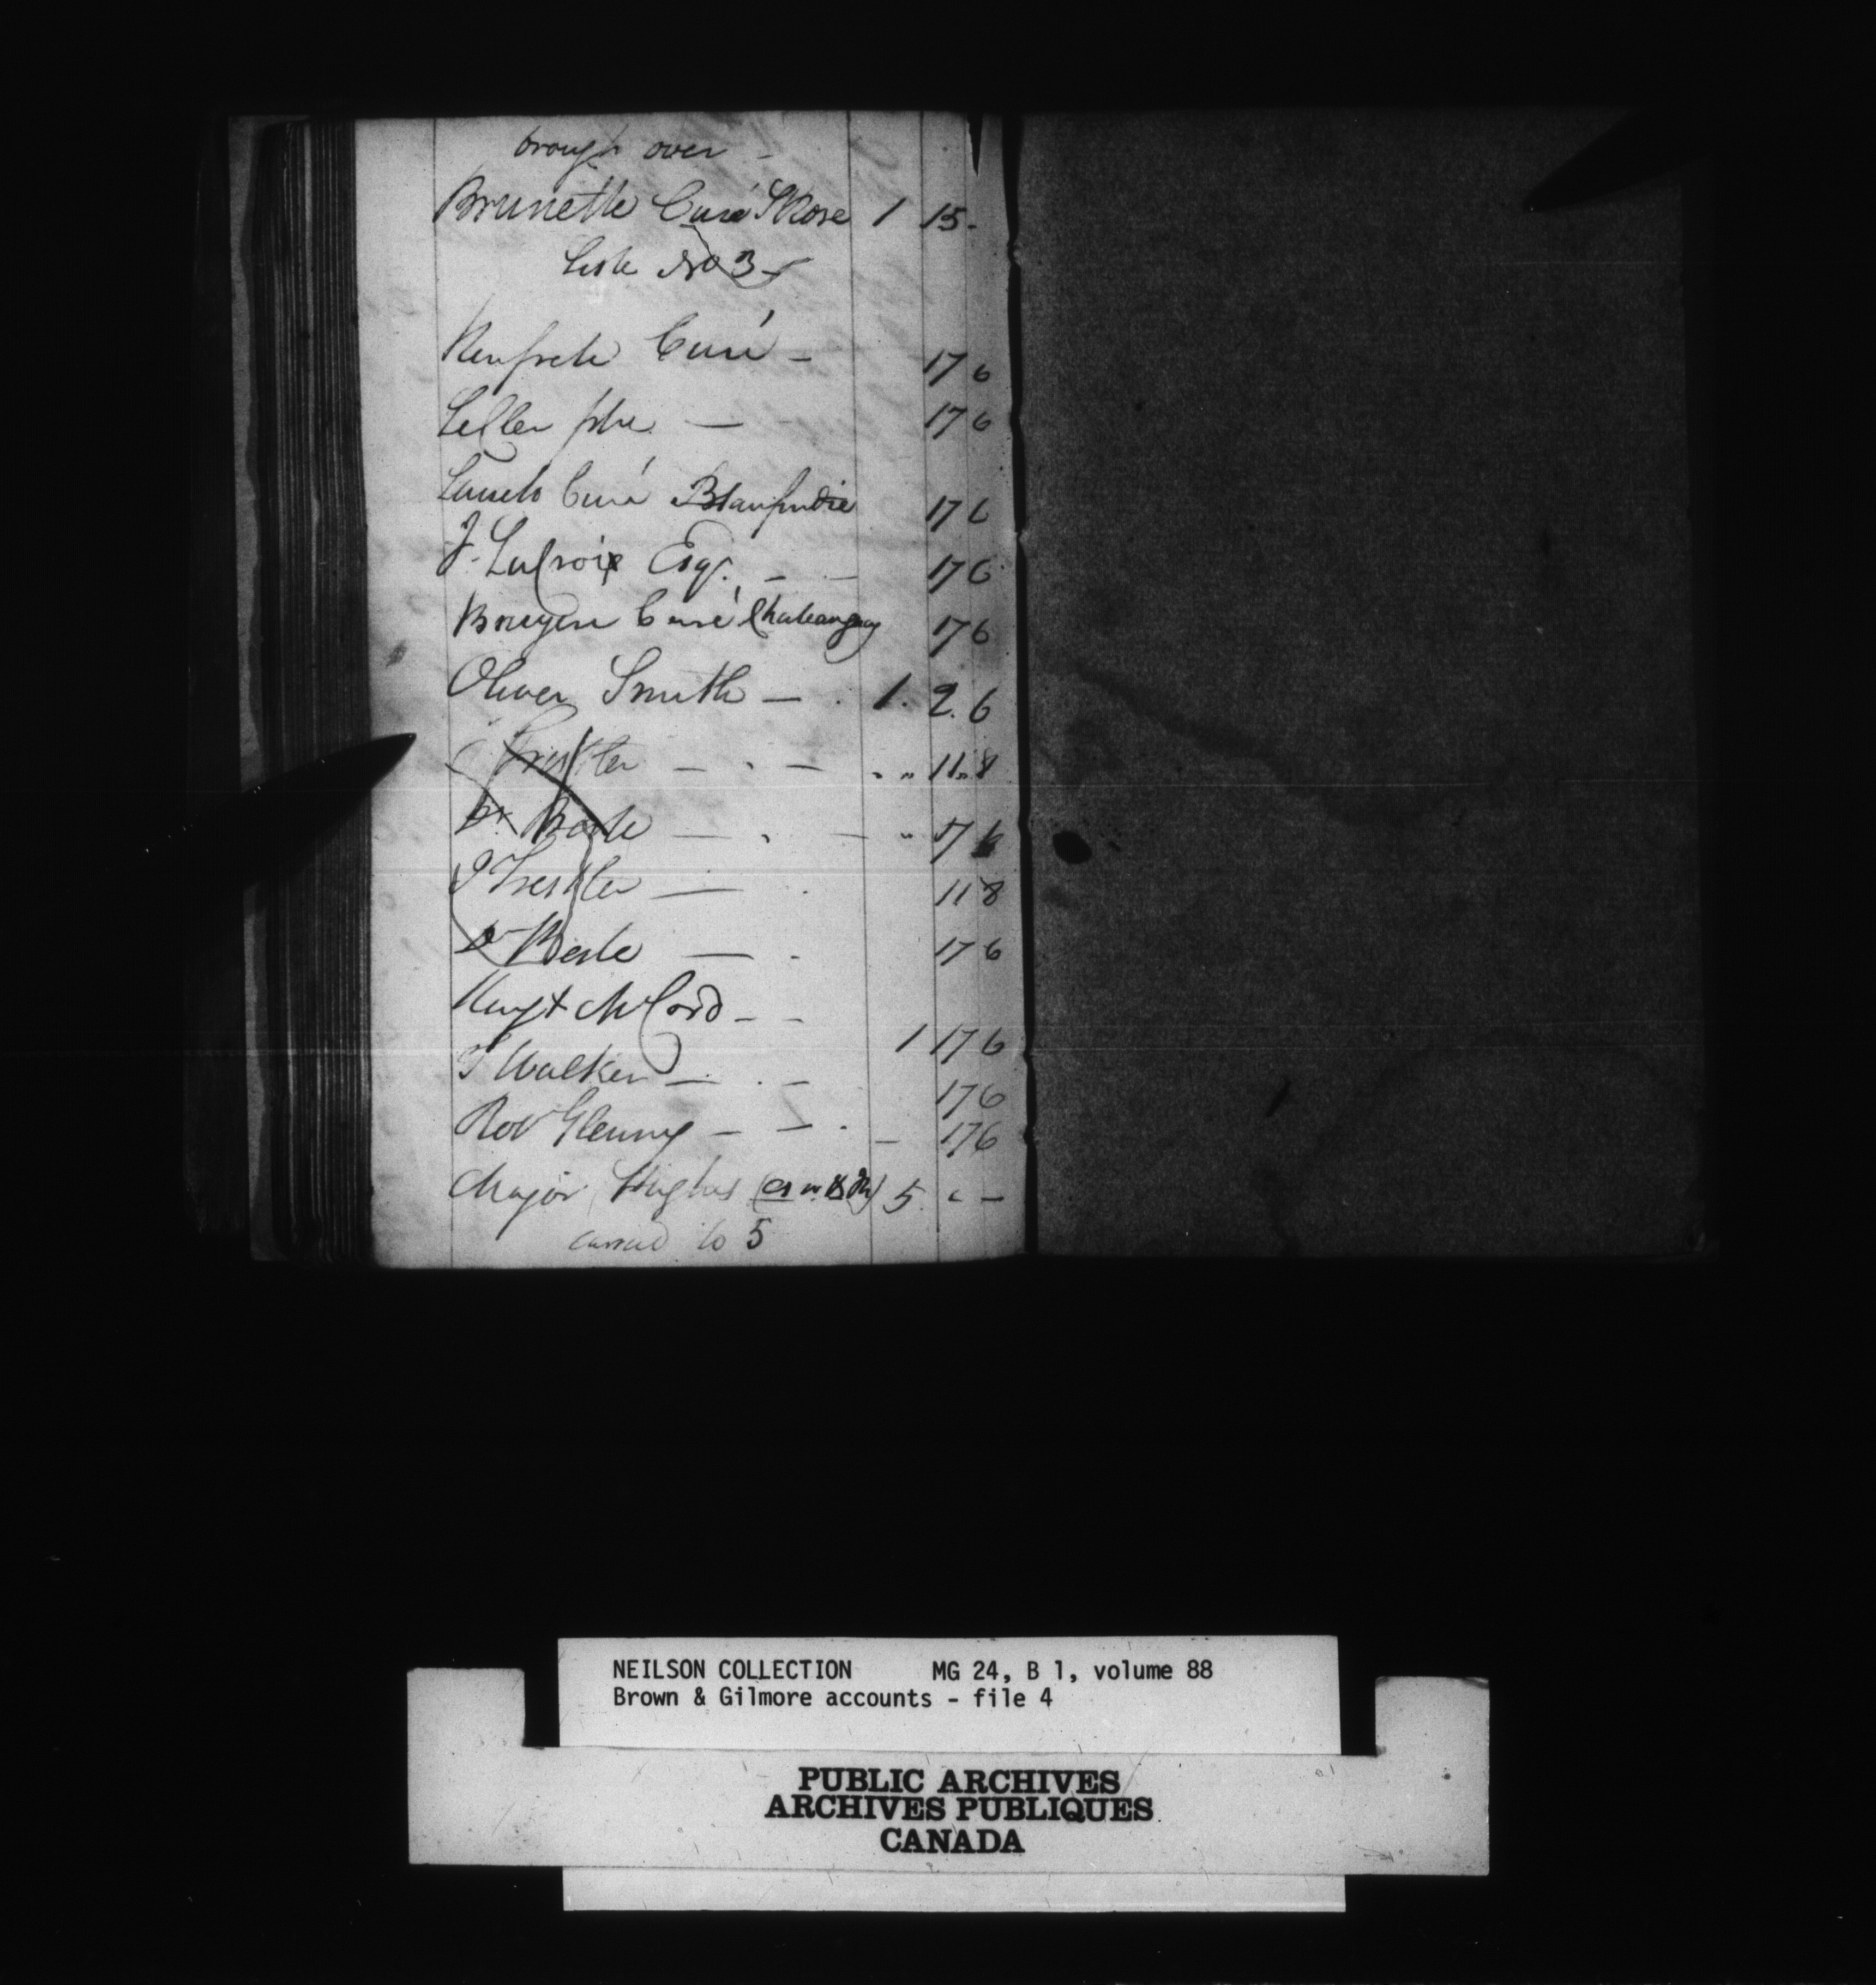 brough over -
Brunette Curé St Rose 1 15 -
Liste No 3
Renfrete Curé - 17 6
Leller ptre. — 17 6
Curé Blanfindie 17 6
J. Lacroix Esqr. - - 17 6
Bruyere Curé Chateaugay 17 6
Oliver Smith — . 1. 2. 6
J Trestler — . — . „ 11 „ 8
Dr. Beek — . — „ 17 6
J Trestler — . 11 8
Dr Beek — . 17 6
McCord - - 1 17 6
T Walker — . - 17 6
Rob Glenny — — . - 17 6
Major Hughes 5 " -
carried to 5
NEILSON COLLECTION MG 24, B 1, volume 88
Brown & Gilmore accounts - file 4
PUBLIC ARCHIVES
ARCHIVES PUBLIQUES
CANADA